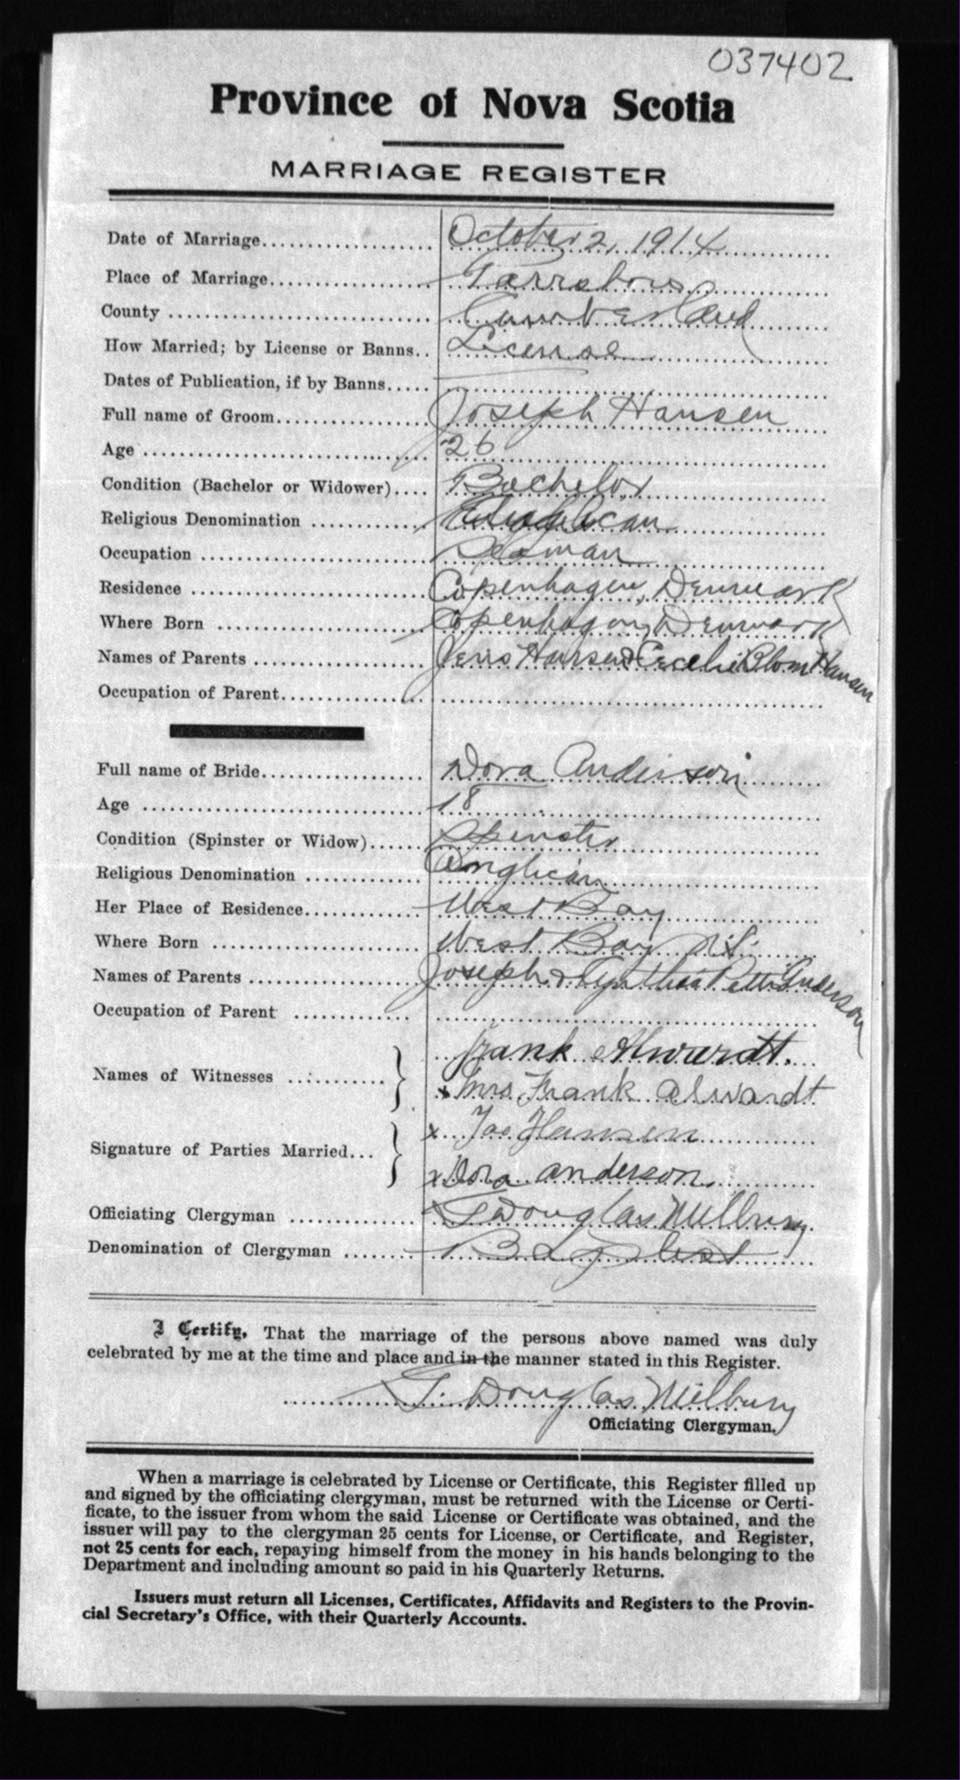 037402
Province of Nova Scotia
MARRIAGE REGISTER
Date of Marriage.................... October 2, 1914
Place of Marriage................... Parrsboro
County ............................ Cumberland
How Married; by License or Banns.. License
Dates of Publication, if by Banns.....
Full name of Groom................. Joseph Hansen
Age ............................... 26
Condition (Bachelor or Widower).... Bachelor
Religious Denomination ............ Anglican
Occupation ........................ Seaman
Residence ......................... Copenhagen, Denmark
Where Born ........................ Copenhagen, Denmark
Names of Parents .................. Jens Hansen & Cecelie Blom Hansen
Occupation of Parent...............
Full name of Bride................. Dora Anderson
Age ............................... 18
Condition (Spinster or Widow)...... Spinster
Religious Denomination ............ Anglican
Her Place of Residence............. West Bay
Where Born ........................ West Bay N.S.
Names of Parents .................. Joseph & Cynthia Anderson
Occupation of Parent ..............
Frank Alwardt.
Names of Witnesses ............
x Mrs. Frank Alwardt
x Joe Hansen
Signature of Parties Married...
x Dora Anderson
Officiating Clergyman ............. G Douglas Milbury
Denomination of Clergyman ......... Baptist
I Certify, That the marriage of the persons above named was duly
celebrated by me at the time and place and in the manner stated in this Register.
G. Douglas Milbury
Officiating Clergyman.
When a marriage is celebrated by License or Certificate, this Register filled up
and signed by the officiating clergyman, must be returned with the License or Certi-
ficate, to the issuer from whom the said License or Certificate was obtained, and the
issuer will pay to the clergyman 25 cents for License, or Certificate, and Register,
not 25 cents for each, repaying himself from the money in his hands belonging to the
Department and including amount so paid in his Quarterly Returns.
Issuers must return all Licenses, Certificates, Affidavits and Registers to the Provin-
cial Secretary's Office, with their Quarterly Accounts.